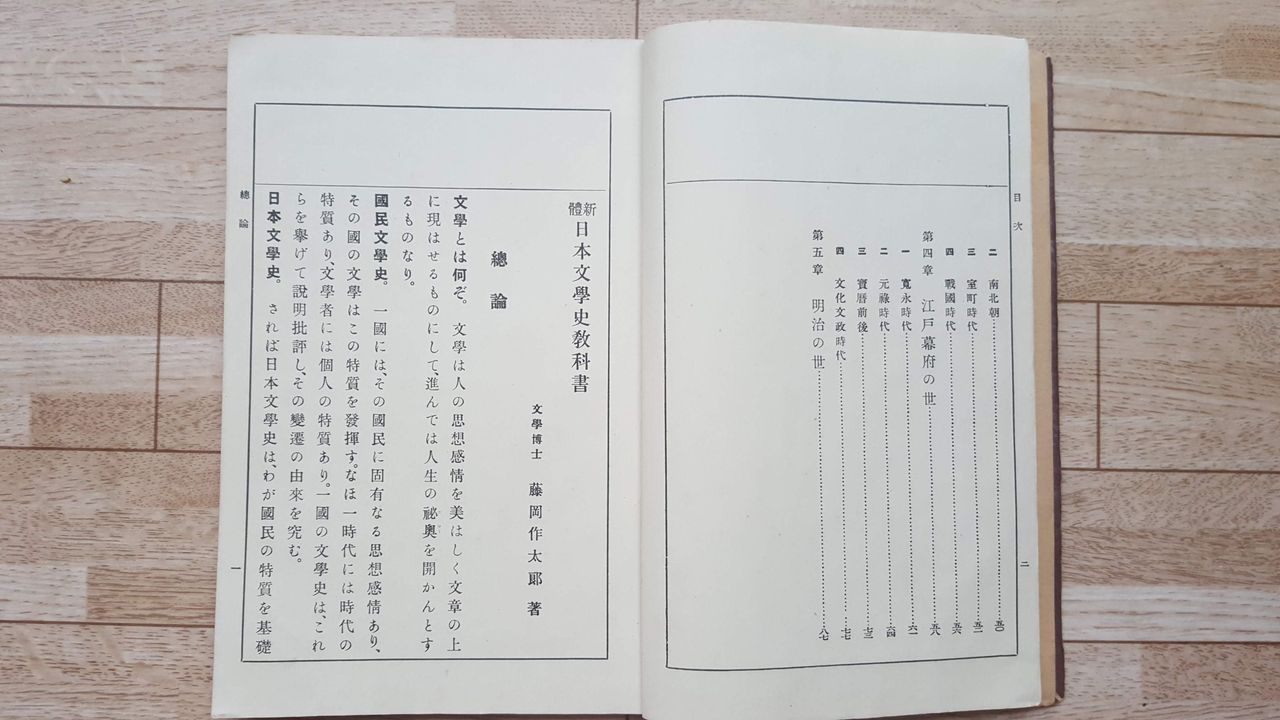 目次
二 南北朝 五〇
三 室町時代
四 戰國時代 五六
第四章 江戸幕府の世 五八
一 寛永時代 六一
二 元祿時代 六四
三 寶暦前後 七三
四 文化文政時代 七七
第五章 明治の世 八七
二
新體 日本文學史敎科書
文學博士 藤岡作太郞 著
總論
文學とは何ぞ。 文學は人の思想感情を美はしく文章の上
に現はせるものにして、進んでは人生の祕奧を開かんとす
るものなり。
國民文學史。 一國には、その國民に固有なる思想感情あり、
その國の文學はこの特質を發揮す。なほ一時代には時代の
特質あり、文學者には個人の特質あり。一國の文學史は、これ
らを擧げて說明批評し、その變遷の由來を究む。
日本文學史。 されば日本文學史は、わが國民の特質を基礎
總論
一